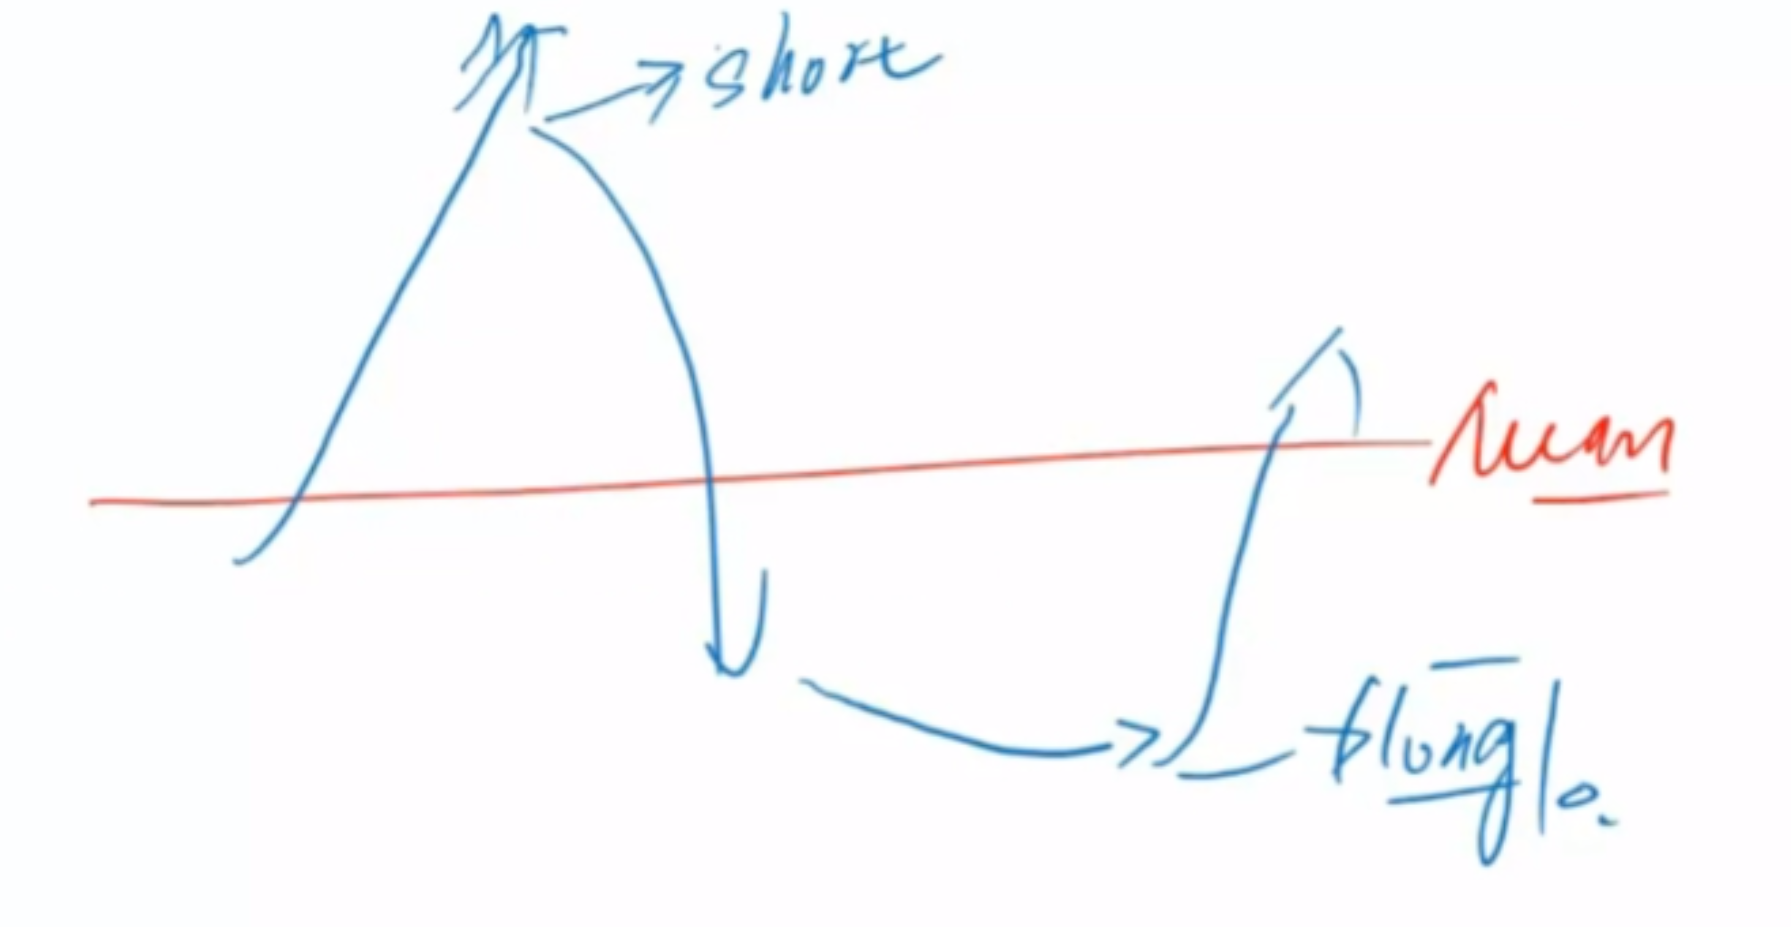 short
Mean
long